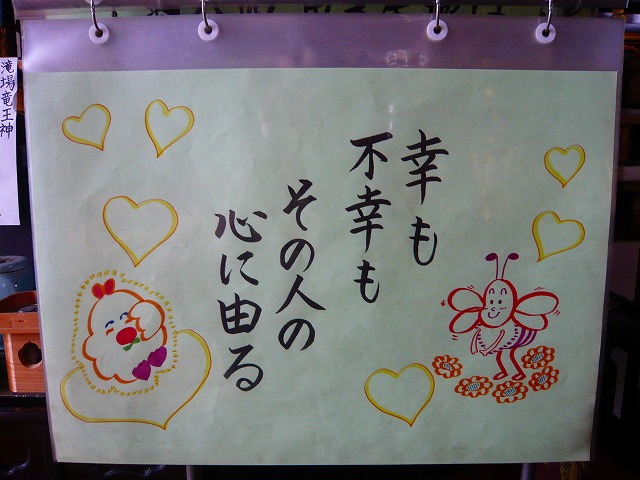 幸も
不幸も
その人の
心に由る
滝場竜王神